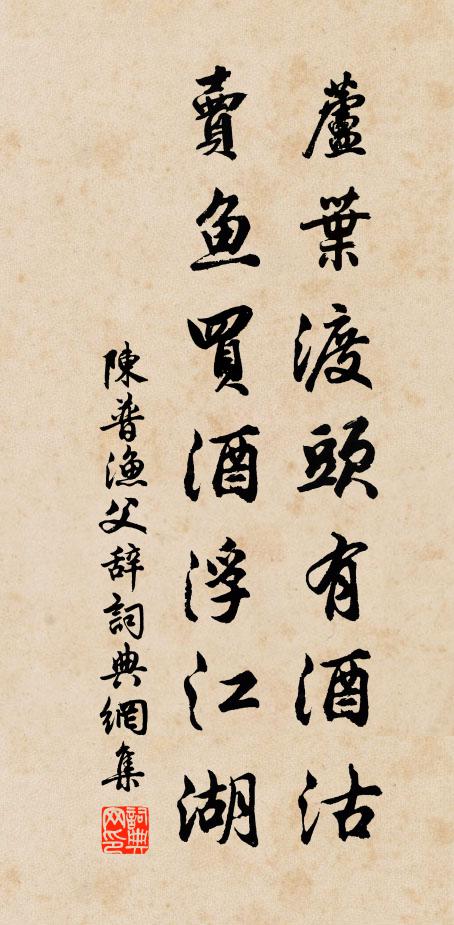 蘆葉渡頭有酒沽
賣魚買酒浮江湖
陳普漁父辞詞典網集
詞典网印